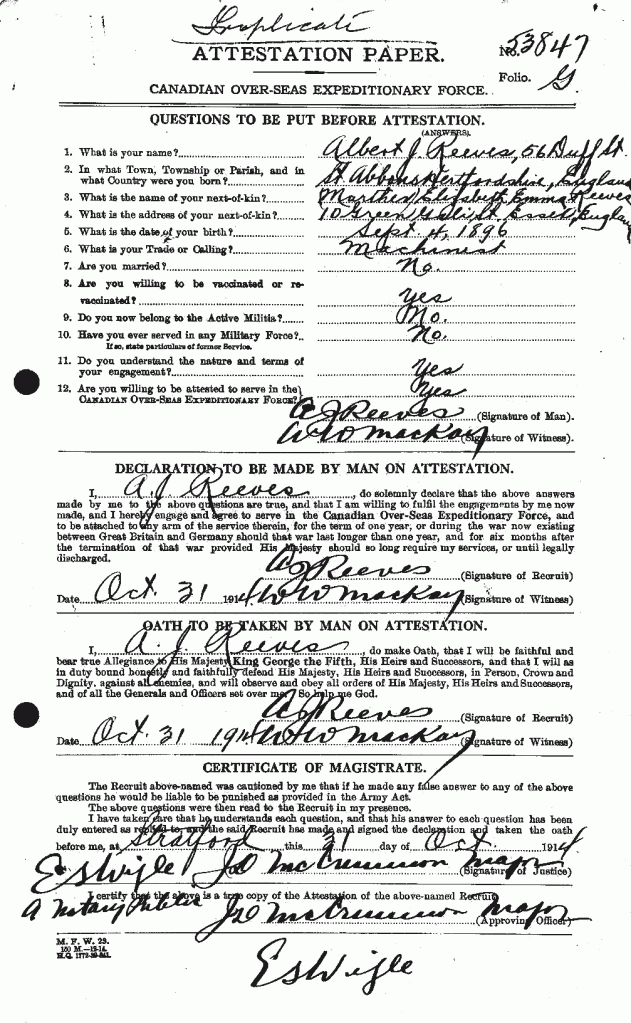 Triplicate
ATTESTATION PAPER.
No. 53847
Folio. G
CANADIAN OVER-SEAS EXPEDITIONARY FORCE.
QUESTIONS TO BE PUT BEFORE ATTESTATION.
(ANSWERS).
1. What is your name? Albert J Reeves, 56 Duff St.
2. In what Town, Township or Parish, and in
what Country were you born? St Abbans Hertfordshire, England
3. What is the name of your next-of-kin? Martha Elizabeth Emma Reeves
4. What is the address of your next-of-kin? 10 Green St. Essex, England
5. What is the date of your birth? Sept 4, 1896
6. What is your Trade or Calling? Machinist
7. Are you married? No.
8. Are you willing to be vaccinated or re-
vaccinated? Yes
9. Do you now belong to the Active Militia? No.
10. Have you ever served in any Military Force? No.
If so, state particulars of former Service.
11. Do you understand the nature and terms of
your engagement? Yes
12. Are you willing to be attested to serve in the
CANADIAN OVER-SEAS EXPEDITIONARY FORCE? Yes
A J Reeves (Signature of Man).
W W Mackay (Signature of Witness).
DECLARATION TO BE MADE BY MAN ON ATTESTATION.
I, A. J. Reeves, do solemnly declare that the above answers
made by me to the above questions are true, and that I am willing to fulfil the engagements by me now
made, and I hereby engage and agree to serve in the Canadian Over-Seas Expeditionary Force, and
to be attached to any arm of the service therein, for the term of one year, or during the war now existing
between Great Britain and Germany should that war last longer than one year, and for six months after
the termination of that war provided His Majesty should so long require my services, or until legally
discharged.
A J Reeves (Signature of Recruit)
Date Oct. 31 1914 W W Mackay (Signature of Witness)
OATH TO BE TAKEN BY MAN ON ATTESTATION.
I, A. J. Reeves, do make Oath, that I will be faithful and
bear true Allegiance to His Majesty King George the Fifth, His Heirs and Successors, and that I will as
in duty bound honestly and faithfully defend His Majesty, His Heirs and Successors, in Person, Crown and
Dignity, against all enemies, and will observe and obey all orders of His Majesty, His Heirs and Successors,
and of all the Generals and Officers set over me. So help me God.
A J Reeves (Signature of Recruit)
Date Oct. 31 1914 W W Mackay (Signature of Witness)
CERTIFICATE OF MAGISTRATE.
The Recruit above-named was cautioned by me that if he made any false answer to any of the above
questions he would be liable to be punished as provided in the Army Act.
The above questions were then read to the Recruit in my presence.
I have taken care that he understands each question, and that his answer to each question has been
duly entered as replied to, and the said Recruit has made and signed the declaration and taken the oath
before me, at Stratford this 31 day of Oct 1914
E S Wigle Jno McCrimmon Major (Signature of Justice)
I certify that the above is a true copy of the Attestation of the above-named Recruit.
A Notary Public Jno McCrimmon Major (Approving Officer)
M. F. W. 23.
150 M.—12-14.
H.Q. 1772-39-841.
E S Wigle